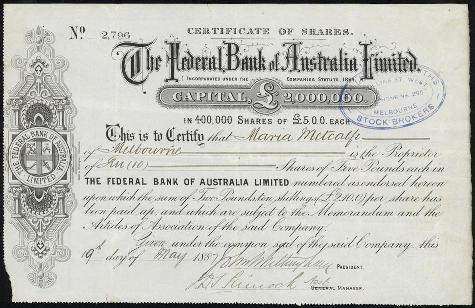 CERTIFICATE OF SHARES.
No 2,796
The Federal Bank of Australia Limited.
INCORPORATED UNDER THE COMPANIES STATUTE, 1864
CAPITAL, £ 2,000,000.
IN 400,000 SHARES OF £5.0.0. EACH.
MELBOURNE
STOCK BROKERS
This is to Certify that Maria Metcalfe
of Melbourne is the Proprietor
of Ten (10) Shares of Five Pounds each in
THE FEDERAL BANK OF AUSTRALIA LIMITED numbered as endorsed hereon
upon which the sum of Two Pounds ten shillings (£2.10.0) per share has
been paid up, and which are subject to the Memorandum and the
Articles of Association of the said Company.
Given under the common seal of the said Company this
19th day of May 1887
PRESIDENT.
GENERAL MANAGER.
THE FEDERAL BANK OF AUSTRALIA
LIMITED